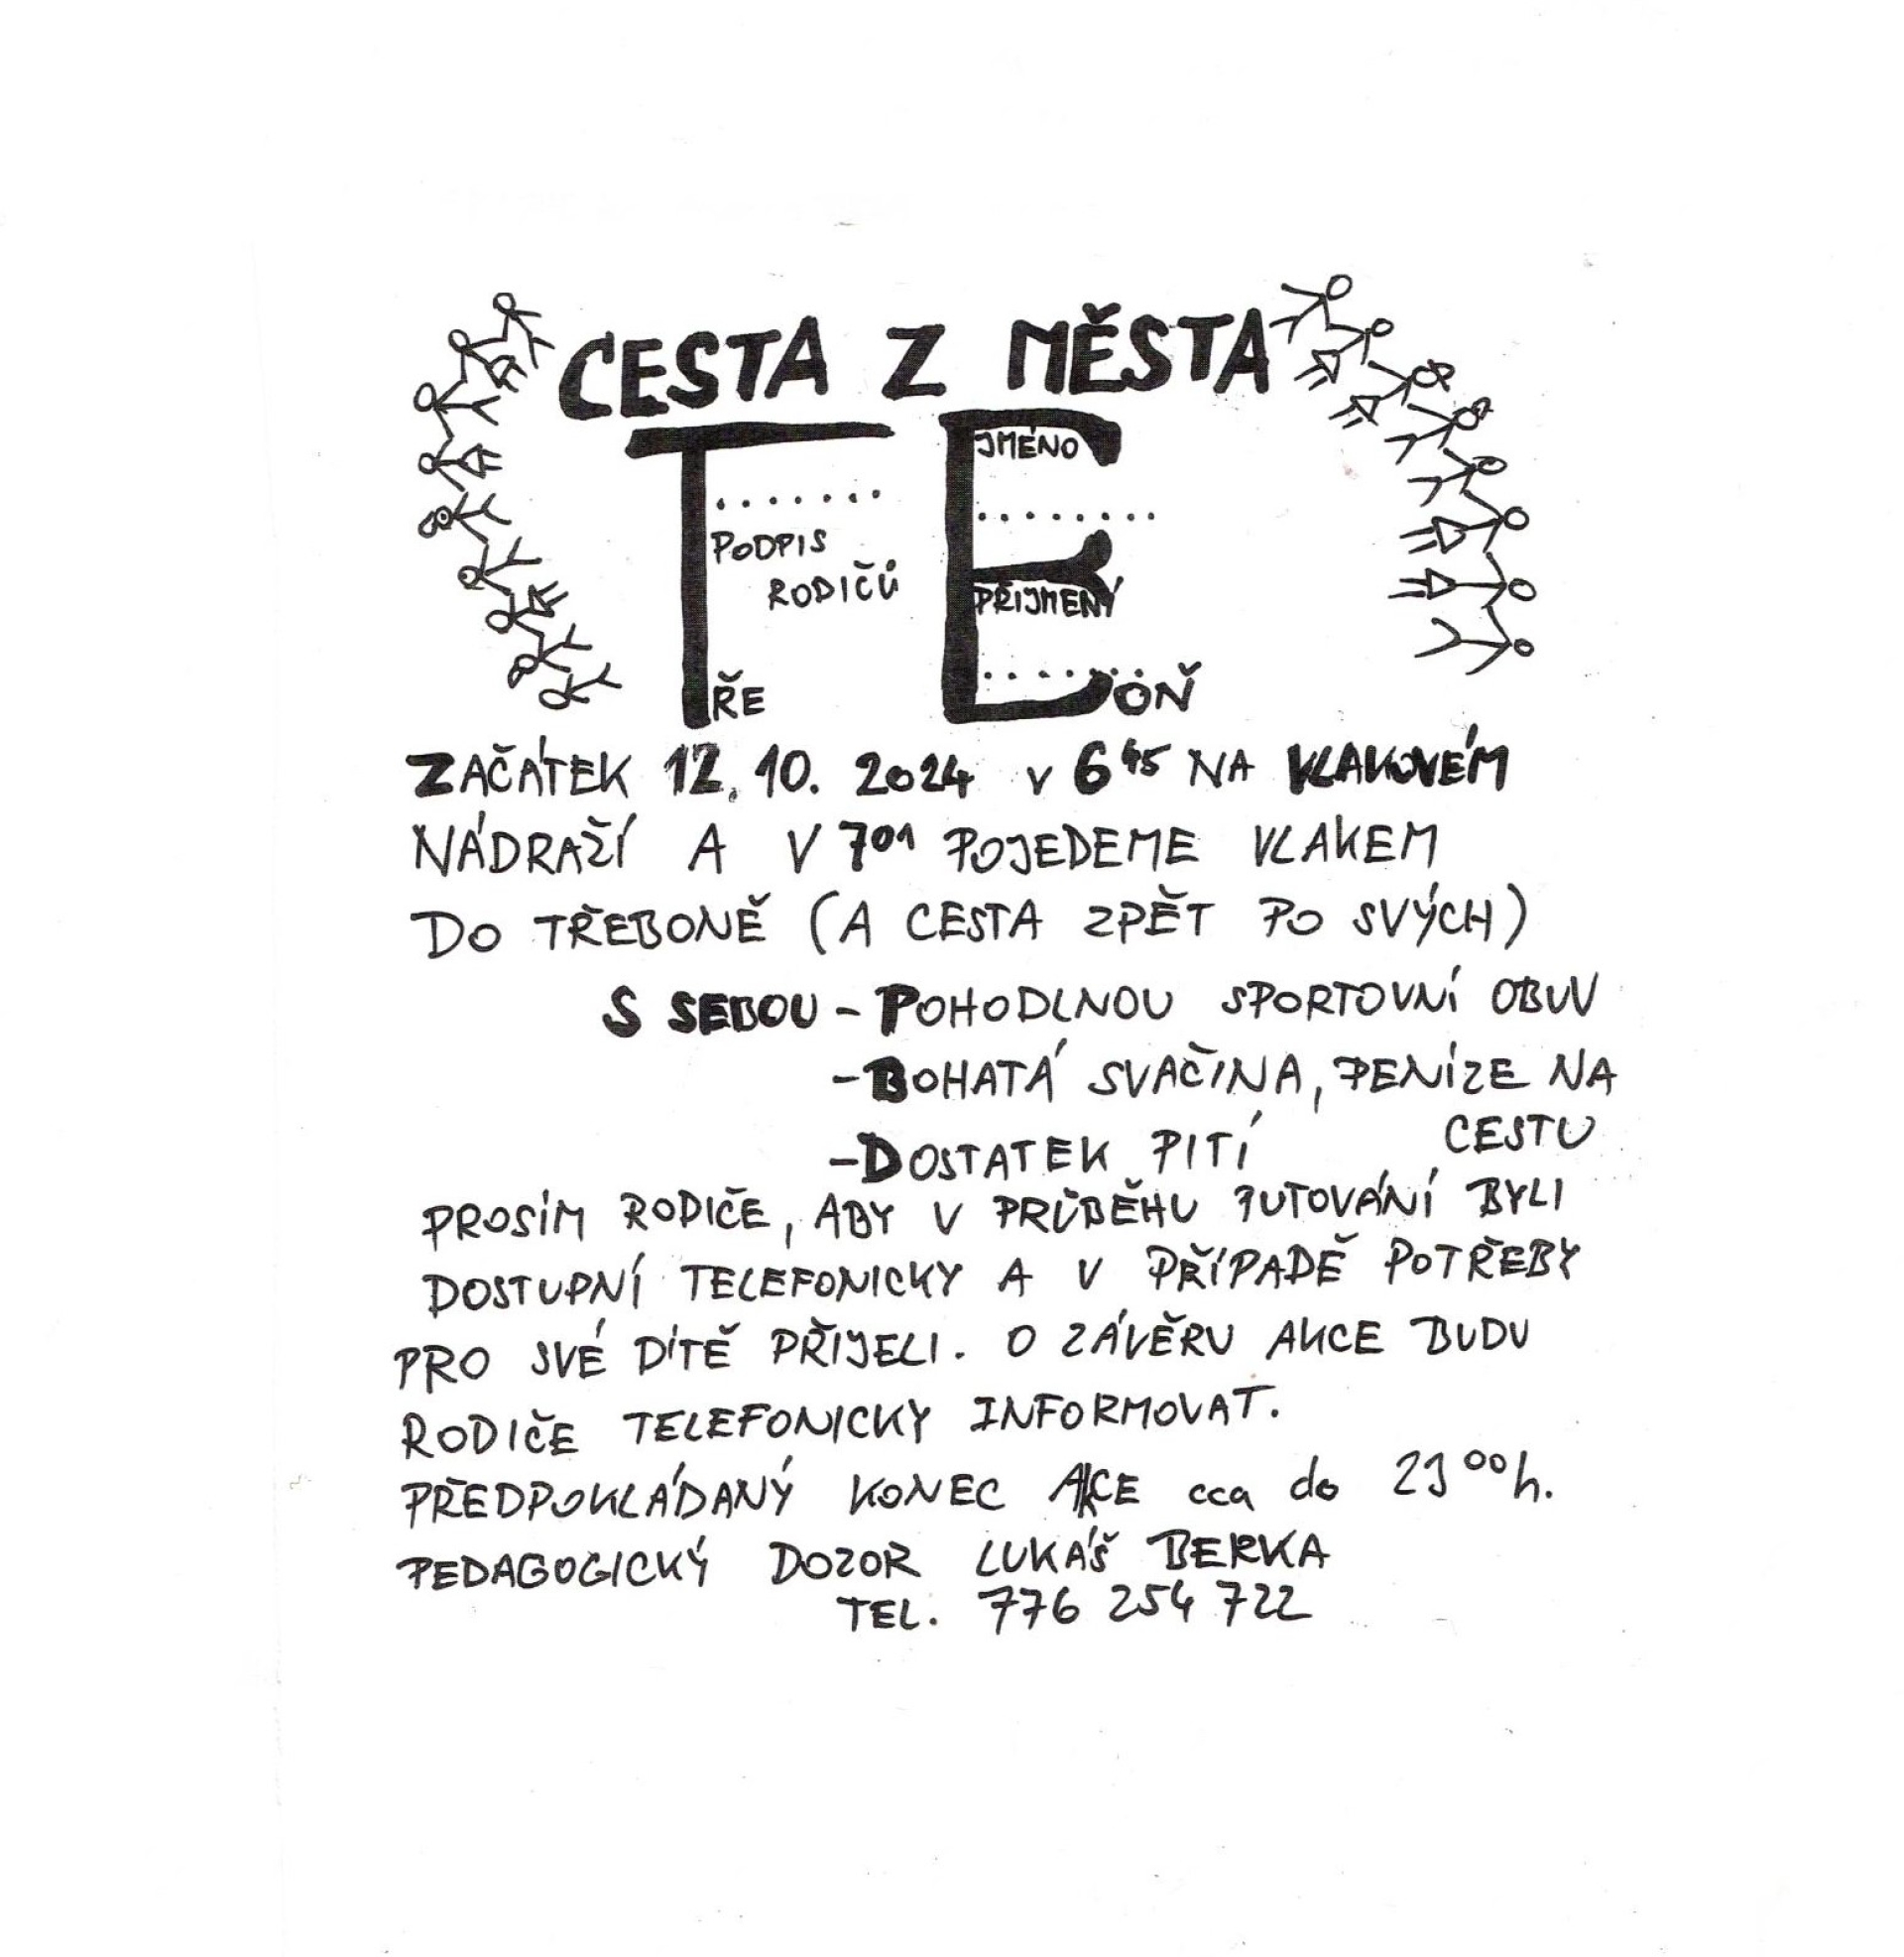 CESTA Z MĚSTA
T E
JMÉNO
.......
........
PODPIS
RODIČŮ
PŘIJMENÝ
........
ŘE
OŇ
ZAČÁTEK 12. 10. 2024 v 6⁴⁵ NA VLAKOVÉM
NÁDRAŽÍ A V 7⁰¹ POJEDEME VLAKEM
DO TŘEBONĚ (A CESTA ZPĚT PO SVÝCH)
S SEBOU - POHODLNOU SPORTOVNÍ OBUV
- BOHATÁ SVAČINA, PENÍZE NA
CESTU
- DOSTATEK PITÍ
PROSÍM RODIČE, ABY V PRŮBĚHU PUTOVÁNÍ BYLI
DOSTUPNÍ TELEFONICKY A V PŘÍPADĚ POTŘEBY
PRO SVÉ DÍTĚ PŘIJELI. O ZÁVĚRU AKCE BUDU
RODIČE TELEFONICKY INFORMOVAT.
PŘEDPOKLÁDANÝ KONEC AKCE cca do 23⁰⁰h.
PEDAGOGICKÝ DOZOR LUKÁŠ BERKA
TEL. 776 254 722